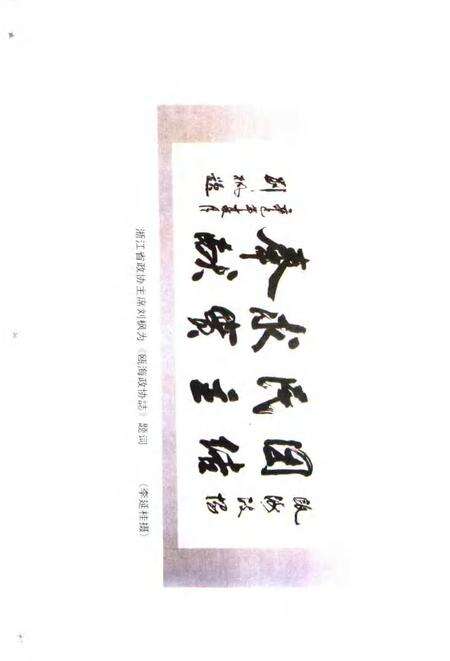 瓯海政协
团结
民主
求实
奉献
刘枫题
浙江省政协主席刘枫为《瓯海政协誌》题词 (李延桂摄)